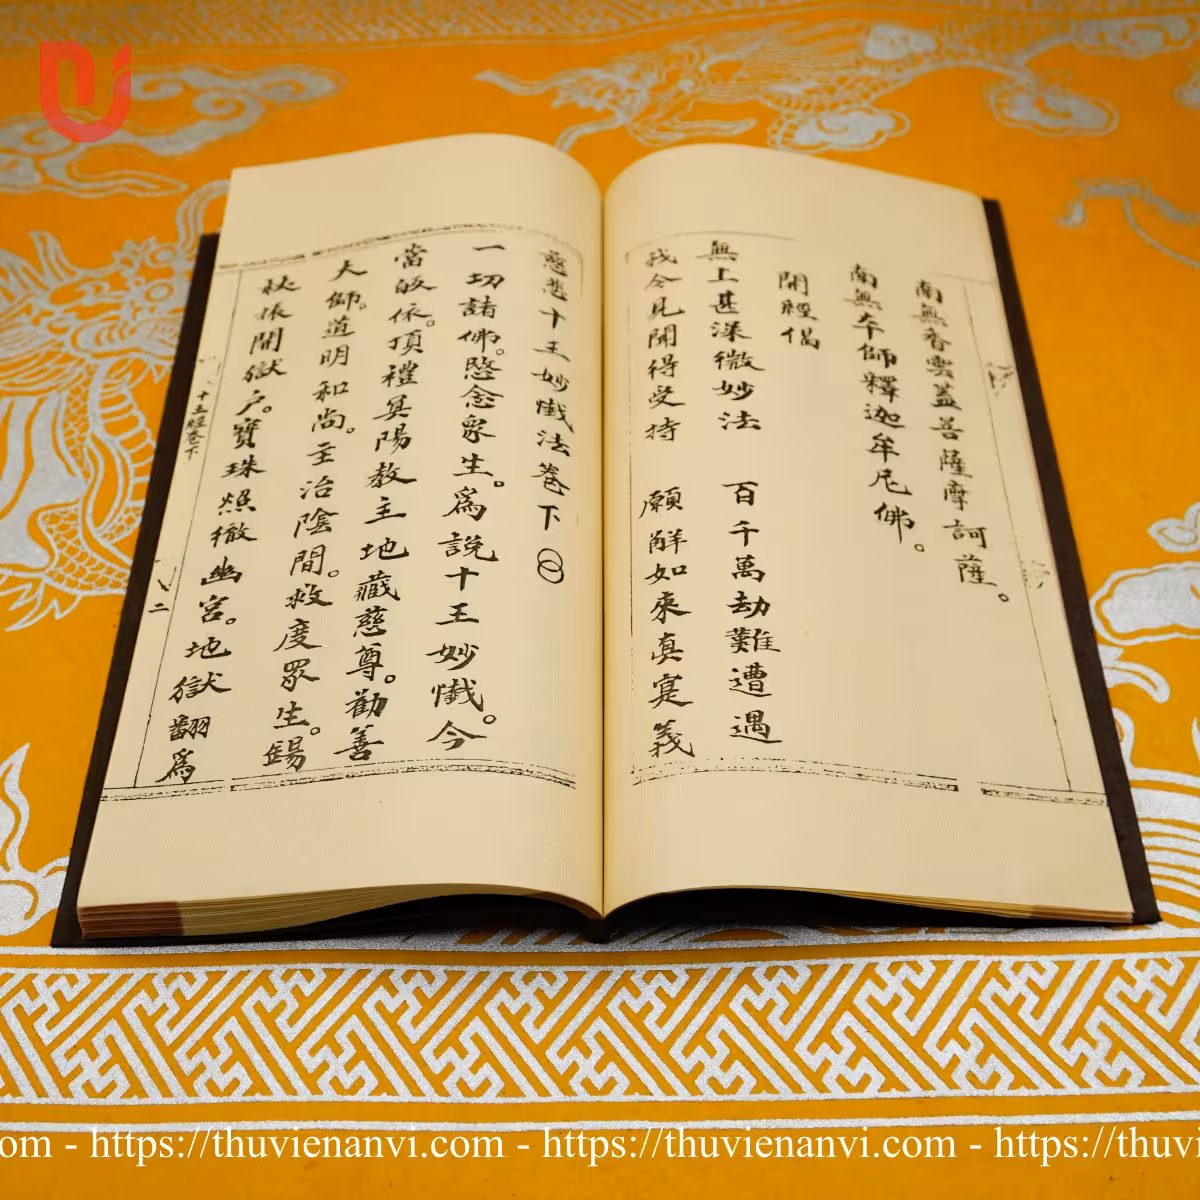 南無香雲蓋菩薩摩訶薩。
南無本師釋迦牟尼佛。
開經偈
無上甚深微妙法 百千萬劫難遭遇
我今見聞得受持 願解如來真寔義
慈悲十王妙懺法卷下
一切諸佛。愍念衆生。爲說十王妙懺。今
當皈依。頂禮冥陽教主地藏慈尊。勸善
大師。道明和尚。主治陰間。救度眾生。錫
杖振開獄户。寶珠照徹幽宮。地獄翻爲
十王經卷下
二
om - https://thuvienanvi.com - https://thuvi